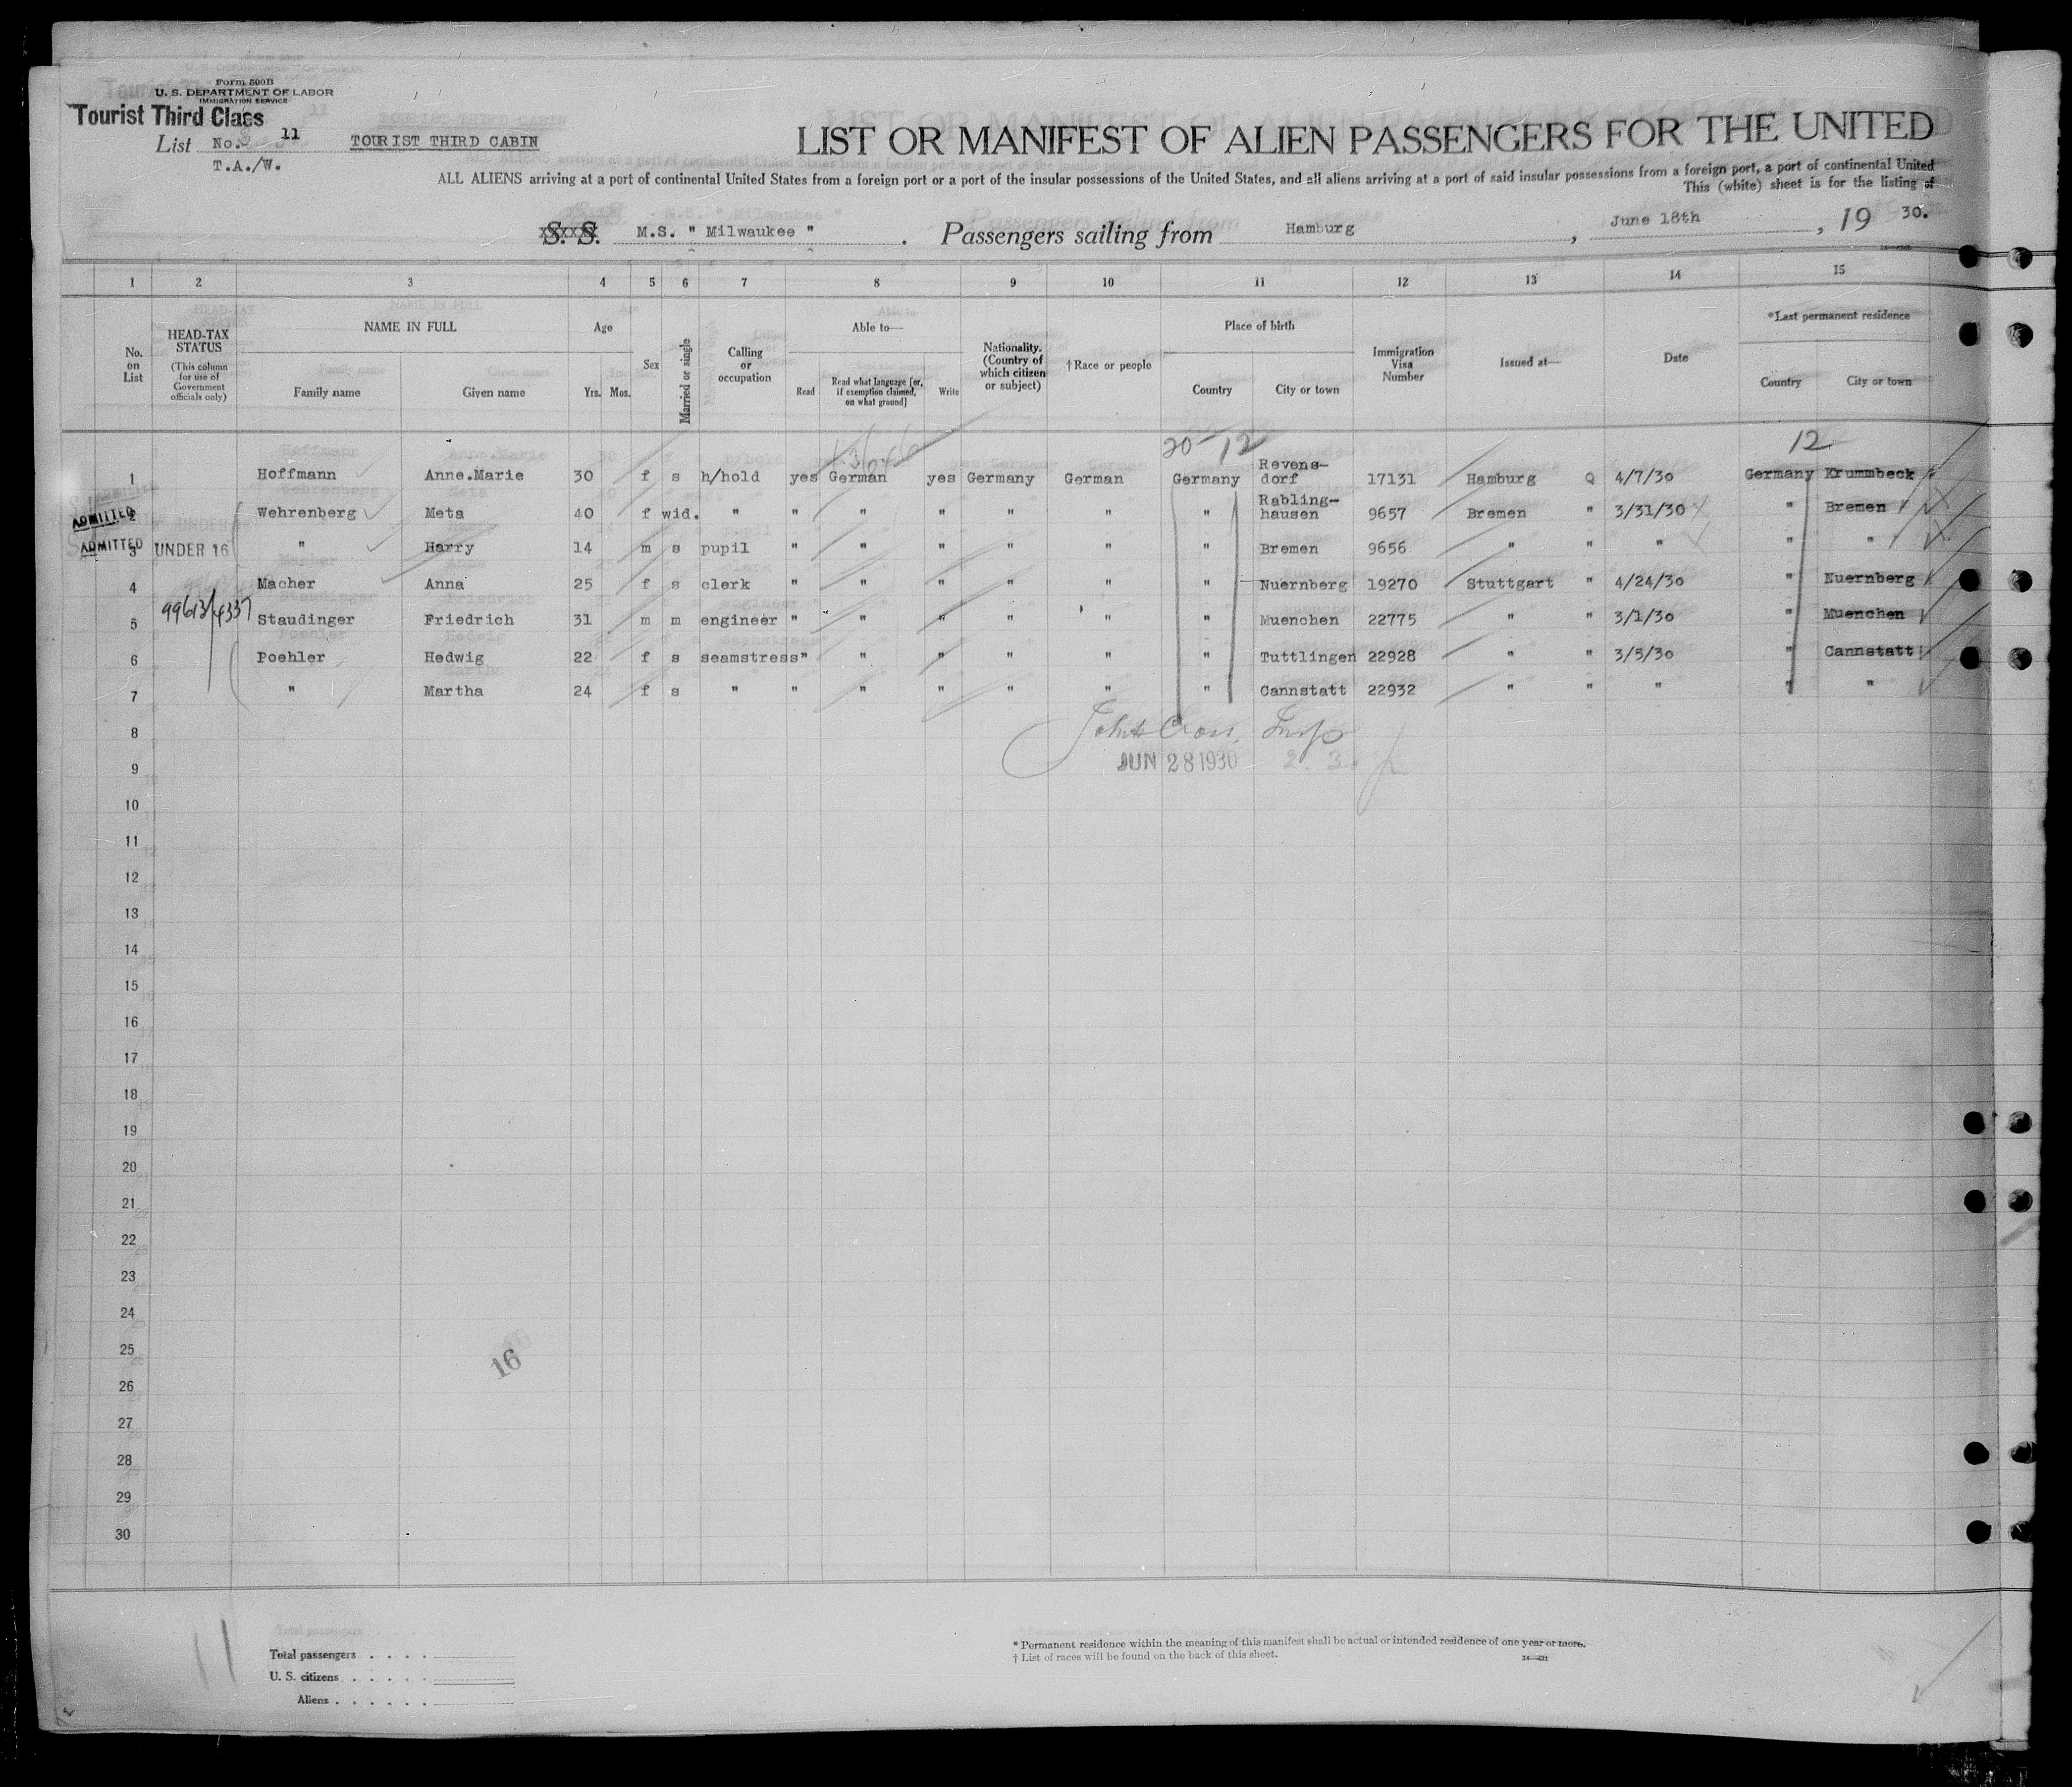 Form 500B
U. S. DEPARTMENT OF LABOR
IMMIGRATION SERVICE
Tourist Third Class
List No. 11
TOURIST THIRD CABIN
T.A./W.
LIST OR MANIFEST OF ALIEN PASSENGERS FOR THE UNITED
ALL ALIENS arriving at a port of continental United States from a foreign port or a port of the insular possessions of the United States, and all aliens arriving at a port of said insular possessions from a foreign port, a port of continental United
This (white) sheet is for the listing of
S. S. M.S. " Milwaukee " . Passengers sailing from Hamburg , June 18th , 19 30.
1 2 3 4 5 6 7 8 9 10 11 12 13 14 15
No. on List
HEAD-TAX STATUS
(This column for use of Government officials only)
NAME IN FULL
Family name Given name
Age
Yrs. Mos.
Sex
Married or single
Calling or occupation
Able to—
Read
Read what language [or, if exemption claimed, on what ground]
Write
Nationality. (Country of which citizen or subject)
†Race or people
Place of birth
Country City or town
Immigration Visa Number
Issued at—
Date
*Last permanent residence
Country City or town
20-12 12
1 Hoffmann Anne.Marie 30 f s h/hold yes German yes Germany German Germany Revens-dorf 17131 Hamburg Q 4/7/30 Germany Krummbeck
ADMITTED 2 Wehrenberg Meta 40 f wid. " " " " " " " Rabling-hausen 9657 Bremen " 3/31/30 " Bremen
ADMITTED 3 UNDER 16 " Harry 14 m s pupil " " " " " " Bremen 9656 " " " " "
4 Macher Anna 25 f s clerk " " " " " " Nuernberg 19270 Stuttgart " 4/24/30 " Nuernberg
99613/4337
5 Staudinger Friedrich 31 m m engineer " " " " " " Muenchen 22775 " " 3/1/30 " Muenchen
6 Poehler Hedwig 22 f s seamstress " " " " " " Tuttlingen 22928 " " 3/5/30 " Cannstatt
7 " Martha 24 f s " " " " " " " Cannstatt 22932 " " " " "
8
Cross, Insp
9
JUN 28 1930
10
11
12
13
14
15
16
17
18
19
20
21
22
23
24
25
16
26
27
28
29
30
11
Total passengers . . . .
U. S. citizens . . . . .
Aliens . . . . . .
* Permanent residence within the meaning of this manifest shall be actual or intended residence of one year or more.
† List of races will be found on the back of this sheet.